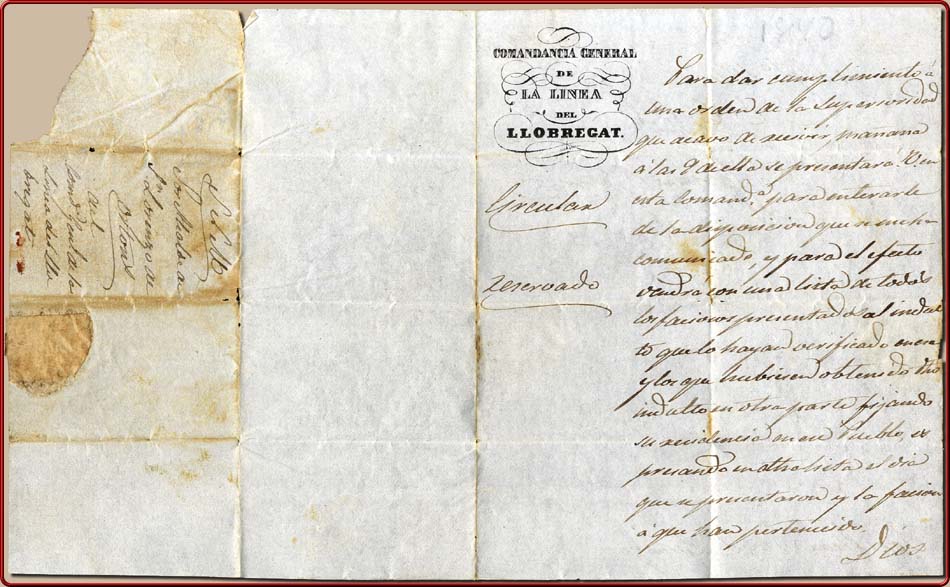 COMANDANCIA GENERAL
DE
LA LINEA
DEL
LLOBREGAT.
Circular
reservado
Para dar cumplimiento á
una orden de la Superioridad
que acavo de recivir, mañana
á las 9 de ella se presentará V. en
esta Comand.ª para enterarle
de la disposicion que se me ha
comunicado, y para el efecto
vendrá con una lista de todos
los faciosos presentados al indul
to que lo hayan verificado en ese
y los que hubiesen obtenido dho
indulto en otra parte fijando
su recidencia en ese Pueblo, es
presando en dha lista el dia
que se presentaron y la facion
á que han pertenecido.
Dios
S.n Lorenzo de
del
Linea del Llo
bregat